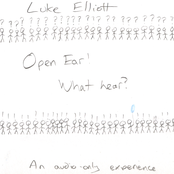 Luke Elliott
? ? ? ? ? ? ? ? ? ? ? ? ? ? ? ?
Open Ear!
What hear?
An audio-only experence